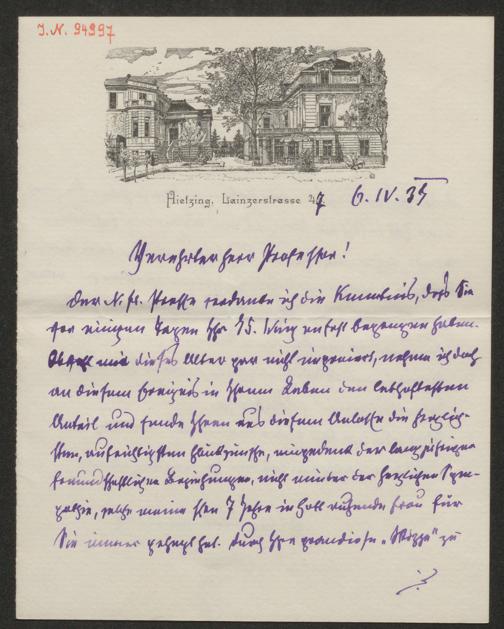 J.N. 94997
Hietzing, Lainzerstrasse 47. 6. IV. 35
Verehrter Herr Professor!
Der N. fr. Presse verdanke ich die Kenntnis, daß Sie
vor einigen Tagen Ihr 75. Wiegenfest begangen haben.
Obwohl mir dieses Alter gar nicht imponiert, nehme ich doch
an diesem Ereignis in Ihrem Leben den lebhaftesten
Anteil und sende Ihnen aus diesem Anlasse die herzlich-
sten, aufrichtigsten Glückwünsche, eingedenk der langjährigen
freundschaftlichen Beziehungen, nicht minder der herzlichen Sym-
pathie, welche meine schon 7 Jahre in Gott ruhende Frau für
Sie immer gehegt hat. Durch Ihre grandiose „Skizze" zu